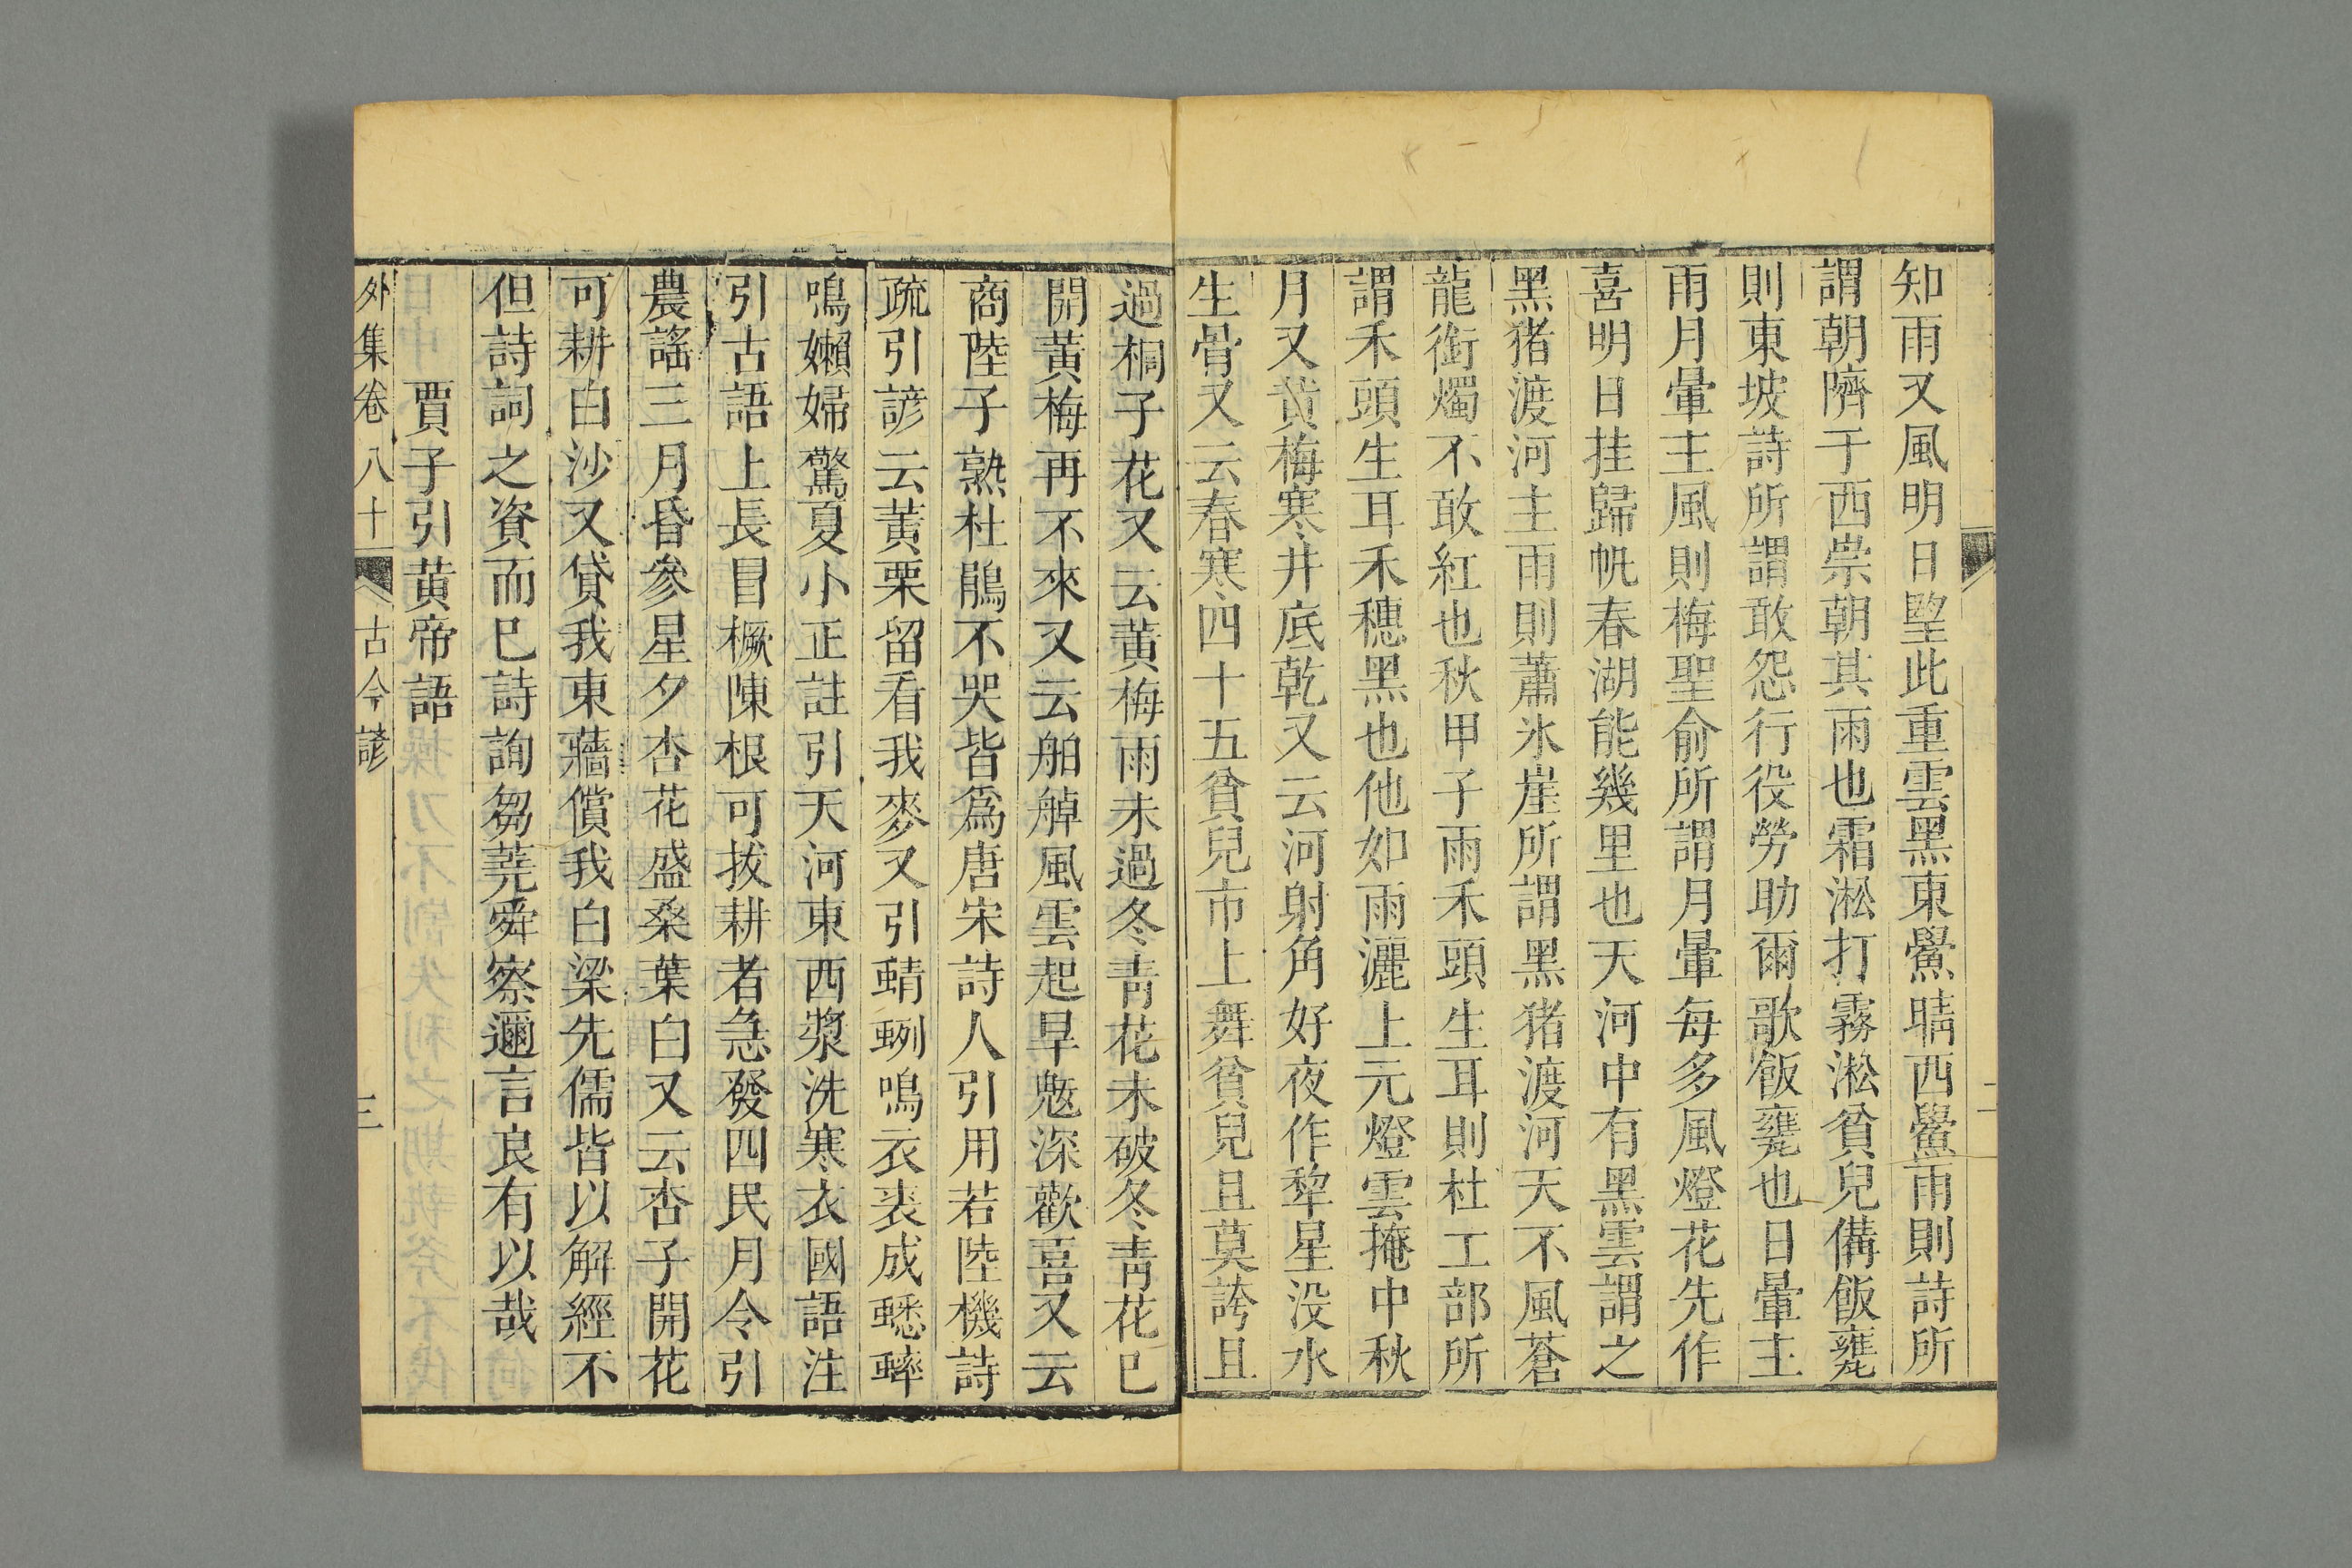 知雨又風明日墍此重雲黑東鱟晴西鱟雨則詩所
謂朝隮于西崇朝其雨也霜淞打霧淞貧兒備飯甕
則東坡詩所謂敢怨行役勞助爾歌飯甕也日暈主
雨月暈主風則梅聖俞所謂月暈每多風燈花先作
喜明日挂歸帆春湖能幾里也天河中有黑雲謂之
黑猪渡河主雨則蕭氷崖所謂黑猪渡河天不風蒼
龍銜燭不敢紅也秋甲子雨禾頭生耳則杜工部所
謂禾頭生耳禾穗黑也他如雨灑上元燈雲掩中秋
月又黃梅寒井底乾又云河射角好夜作犂星没水
生骨又云春寒四十五貧兒市上舞貧兒且莫誇且
過桐子花又云黃梅雨未過冬青花未破冬青花已
開黃梅再不來又云舶䑲風雲起旱魃深歡喜又云
商陸子熟杜鵑不哭皆爲唐宋詩人引用若陸機詩
疏引諺云黃栗留看我麥又引蜻蛚鳴衣裘成蟋蟀
鳴嬾婦驚夏小正註引天河東西漿洗寒衣國語注
引古語上長冒橛陳根可拔耕者急發四民月令引
農謠三月昏參星夕杏花盛桑葉白又云杏子開花
可耕白沙又貸我東蘠償我白梁先儒皆以解經不
但詩詞之資而已詩詢芻蕘舜察邇言良有以哉
賈子引黃帝語
外集卷八十 古今諺 三